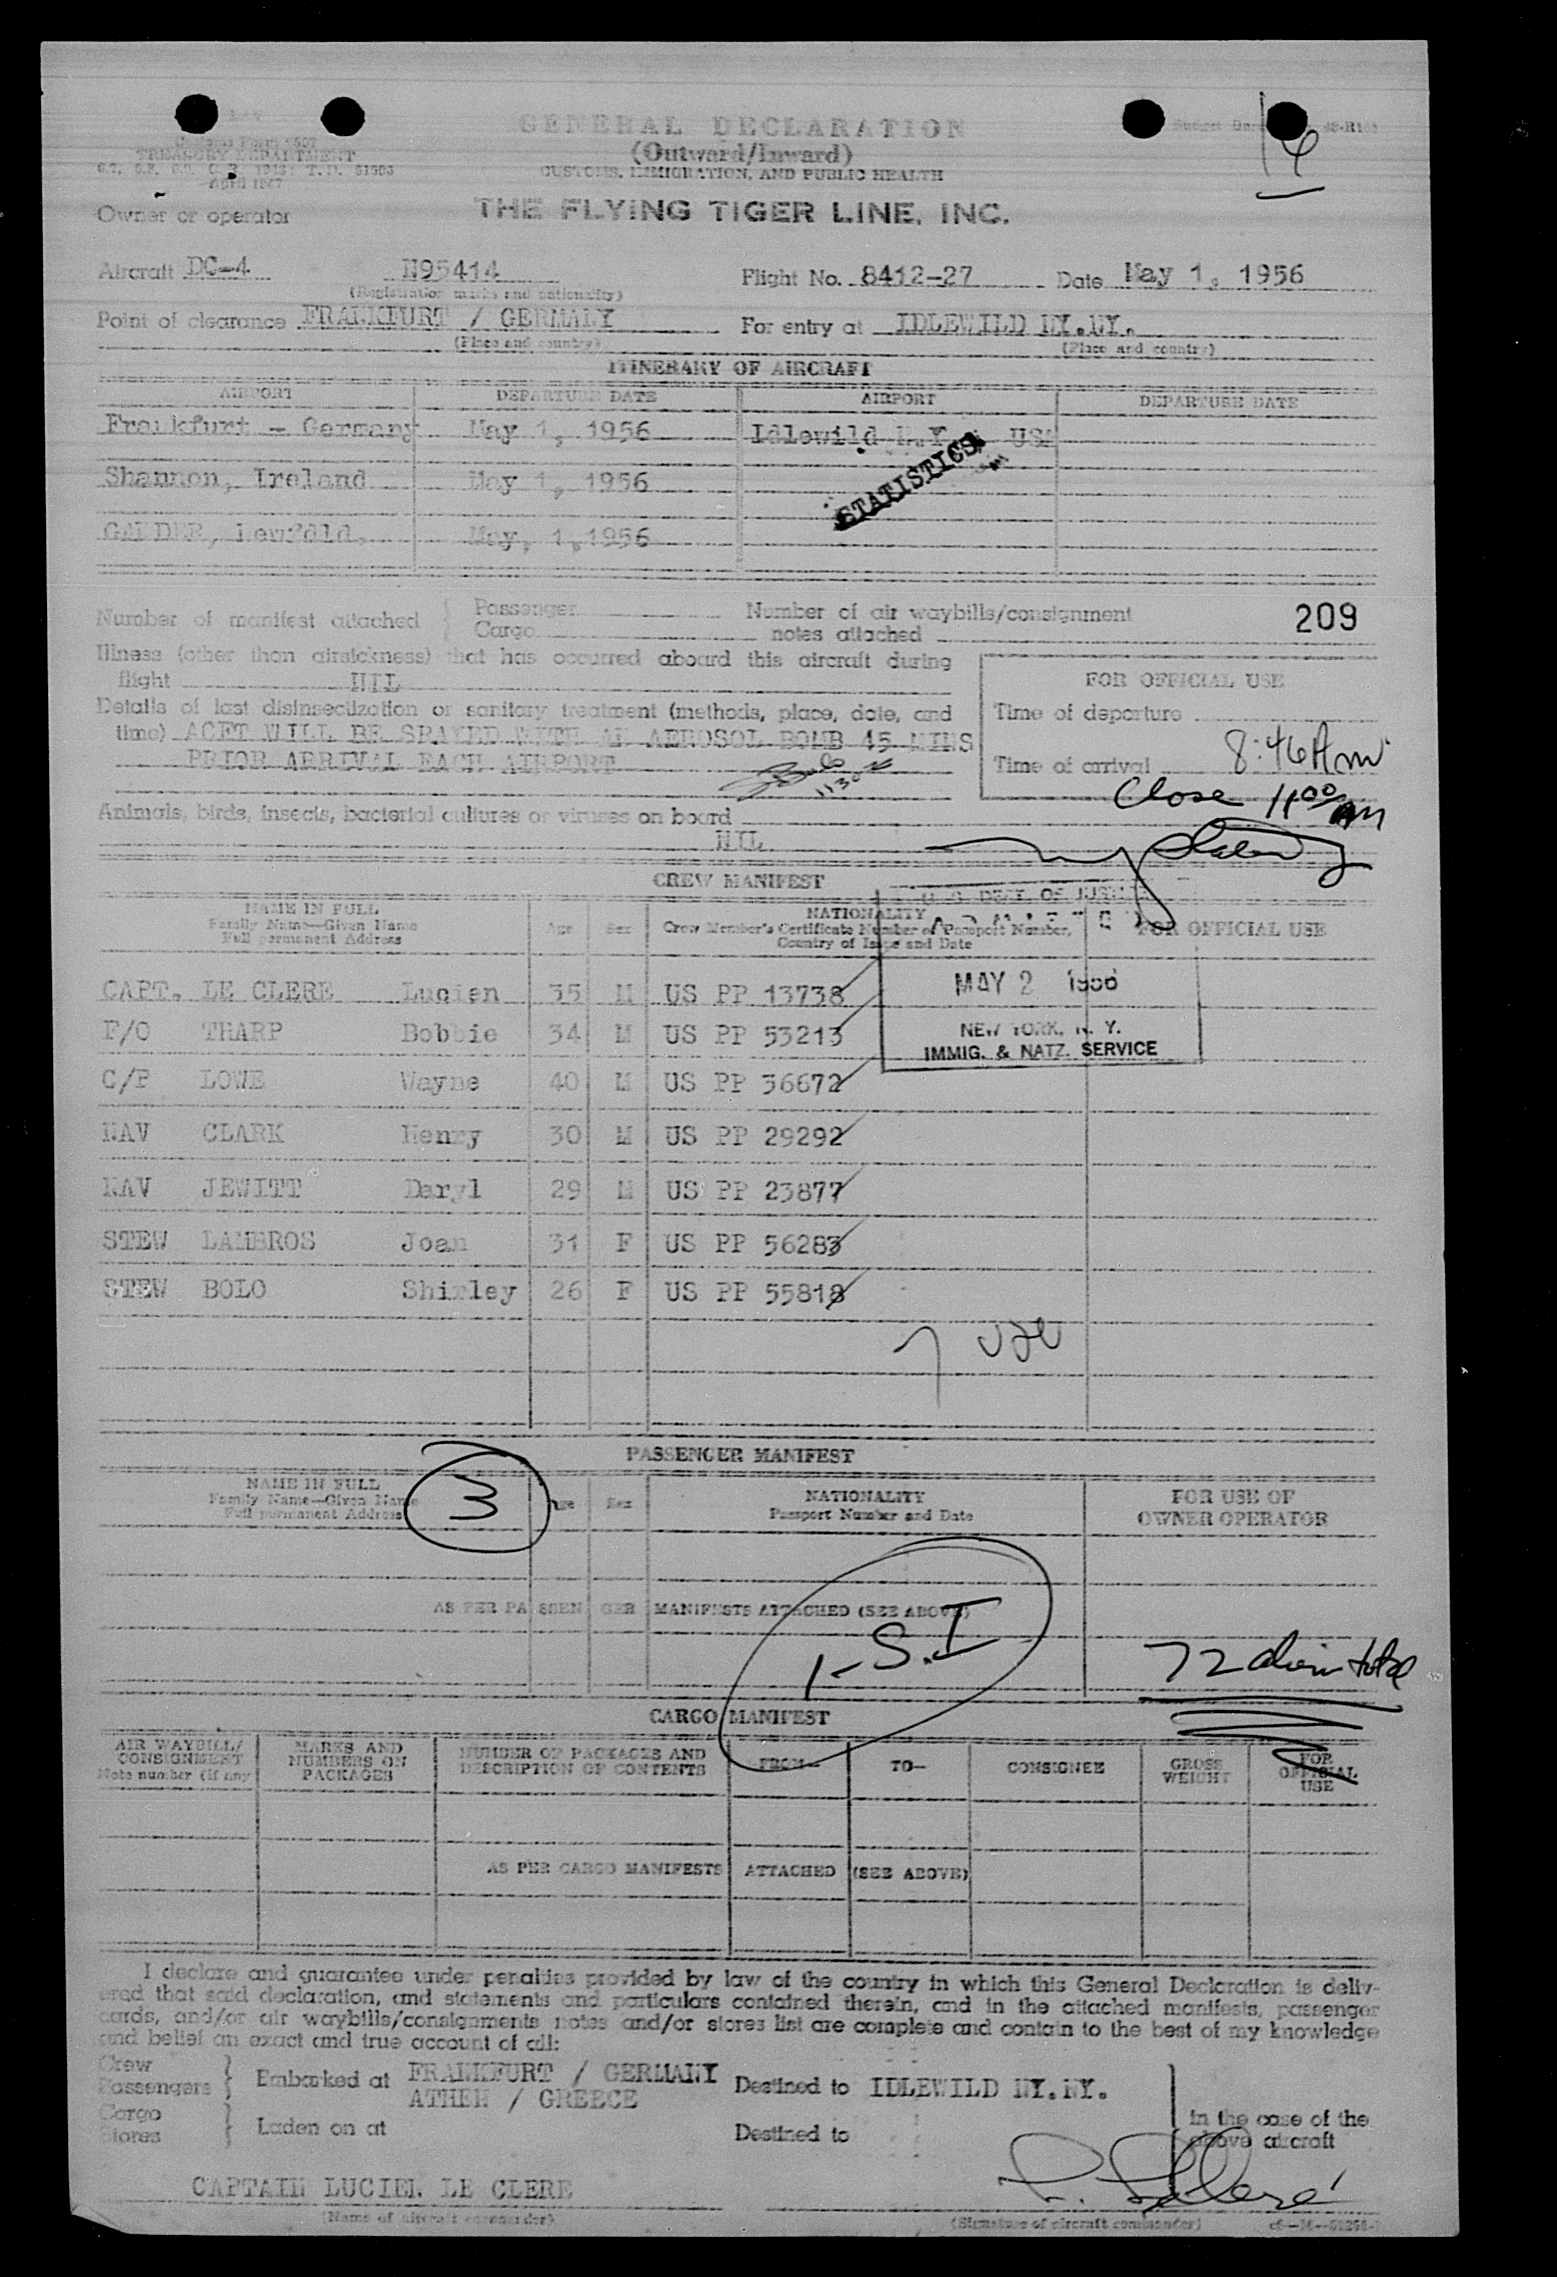 GENERAL DECLARATION
(Outward/Inward)
CUSTOMS, IMMIGRATION, AND PUBLIC HEALTH
TREASURY DEPARTMENT
14
Owner or operator THE FLYING TIGER LINE, INC.
Aircraft DC-4 N95414 Flight No. 8412-27 Date May 1, 1956
(Registration marks and nationality)
Point of clearance FRANKFURT / GERMANY For entry at IDLEWILD NY.NY.
(Place and country) (Place and country)
ITINERARY OF AIRCRAFT
AIRPORT DEPARTURE DATE AIRPORT DEPARTURE DATE
Frankfurt - Germany May 1, 1956 Idlewild N.Y. USA
STATISTICS
Shannon, Ireland May 1, 1956
May, 1,1956
Number of manifest attached { Passenger Number of air waybills/consignment 209
Cargo notes attached
Illness (other than airsickness) that has occurred aboard this aircraft during
flight NIL
FOR OFFICIAL USE
Details of last disinsectization or sanitary treatment (methods, place, date, and
time) ACFT WILL BE SPAYED WITH AN AEROSOL BOMB 45 MINS
PRIOR ARRIVAL EACH AIRPORT
Time of departure
Time of arrival 8:46 Am
Close 11:00 AM
Animals, birds, insects, bacterial cultures or viruses on board
NIL
CREW MANIFEST
NAME IN FULL
Family Name—Given Name
Full permanent Address
Age Sex
NATIONALITY
Crew Member's Certificate Number of Passport Number,
Country of Issue and Date
FOR OFFICIAL USE
U. S. DEPT. OF JUSTICE
ADMITTED
MAY 2 1956
NEW YORK, N. Y.
IMMIG. & NATZ. SERVICE
CAPT. LE CLERE Lucien 35 M US PP 13738
F/O THARP Bobbie 34 M US PP 53213
C/P LOWE Wayne 40 M US PP 36672
NAV CLARK Henry 30 M US PP 29292
NAV JEWITT Daryl 29 M US PP 23877
STEW LAMBROS Joan 31 F US PP 56283
STEW BOLO Shirley 26 F US PP 55818
7
PASSENGER MANIFEST
NAME IN FULL
Family Name—Given Name
Full permanent Address
3
Age Sex
NATIONALITY
Passport Number and Date
FOR USE OF
OWNER OPERATOR
AS PER PASSENGER MANIFESTS ATTACHED (SEE ABOVE)
1-S.I
72 alien total
CARGO MANIFEST
AIR WAYBILL/
CONSIGNMENT
Note number (if any
MARKS AND
NUMBERS ON
PACKAGES
NUMBER OF PACKAGES AND
DESCRIPTION OF CONTENTS
FROM— TO— CONSIGNEE
GROSS
WEIGHT
FOR
OFFICIAL
USE
AS PER CARGO MANIFESTS ATTACHED (SEE ABOVE)
I declare and guarantee under penalties provided by law of the country in which this General Declaration is deliv-
ered that said declaration, and statements and particulars contained therein, and in the attached manifests, passenger
cards, and/or air waybills/consignments notes and/or stores list are complete and contain to the best of my knowledge
and belief an exact and true account of all:
Crew
Passengers } Embarked at FRANKFURT / GERMANY Destined to IDLEWILD NY.NY.
ATHEN / GREECE
Cargo
Stores } Laden on at Destined to
In the case of the
above aircraft
CAPTAIN LUCIEN LE CLERE
(Name of aircraft commander)
(Signature of aircraft commander)